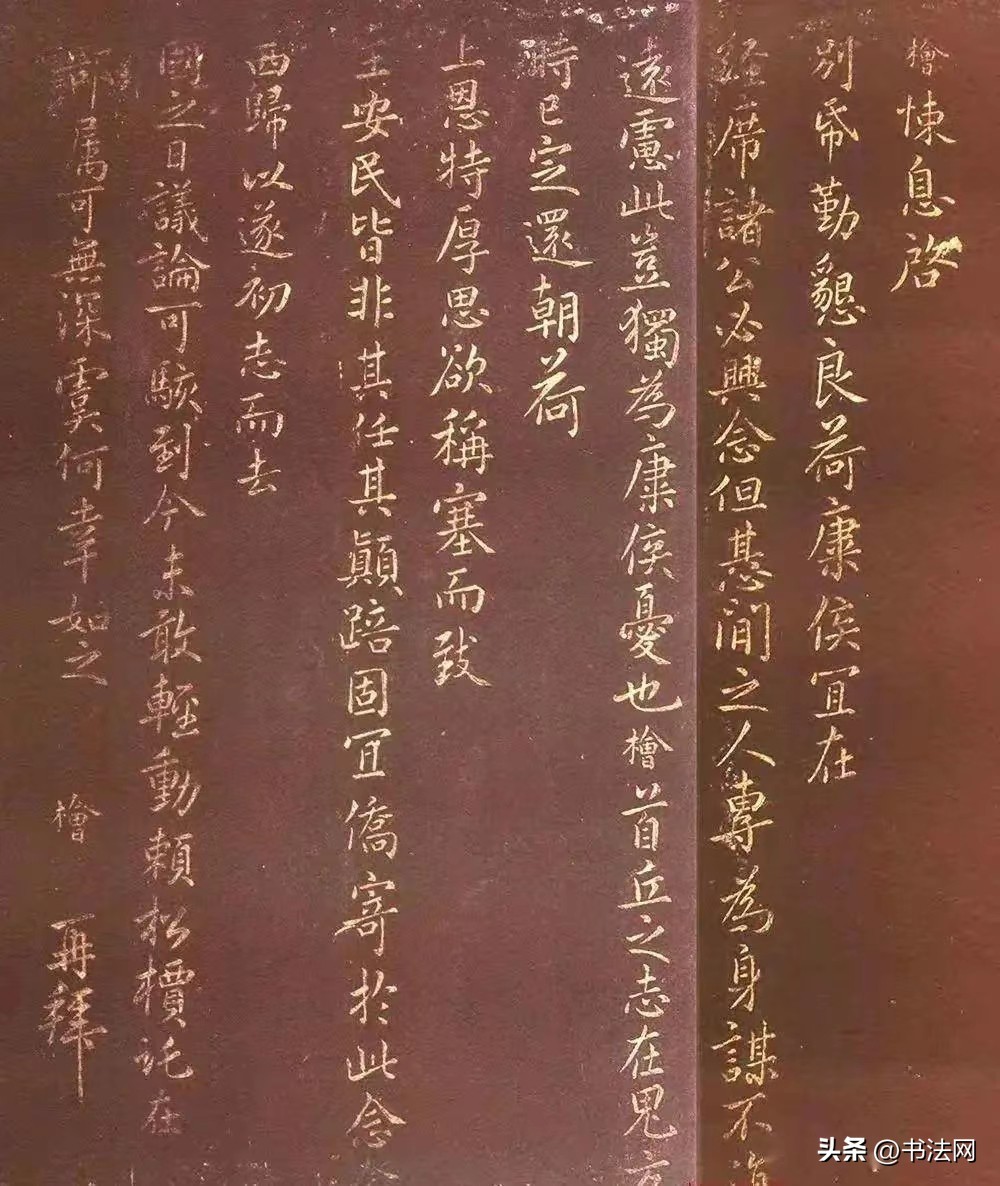 檜悚息啓
別帋勤懇良荷康侯宜在
經席諸公必興念但基間之人專為身謀不
遠慮此豈獨為康侯憂也檜首丘之志在
時已定還朝荷
上恩特厚思欲稱塞而致
主安民皆非其任其顛踣固宜僑寄於此念
西歸以遂初志而去
國之日議論可駭到今未敢輕動賴松檟託在
鄰属可無深虞何幸如之 檜 再拜
头条 @书法网